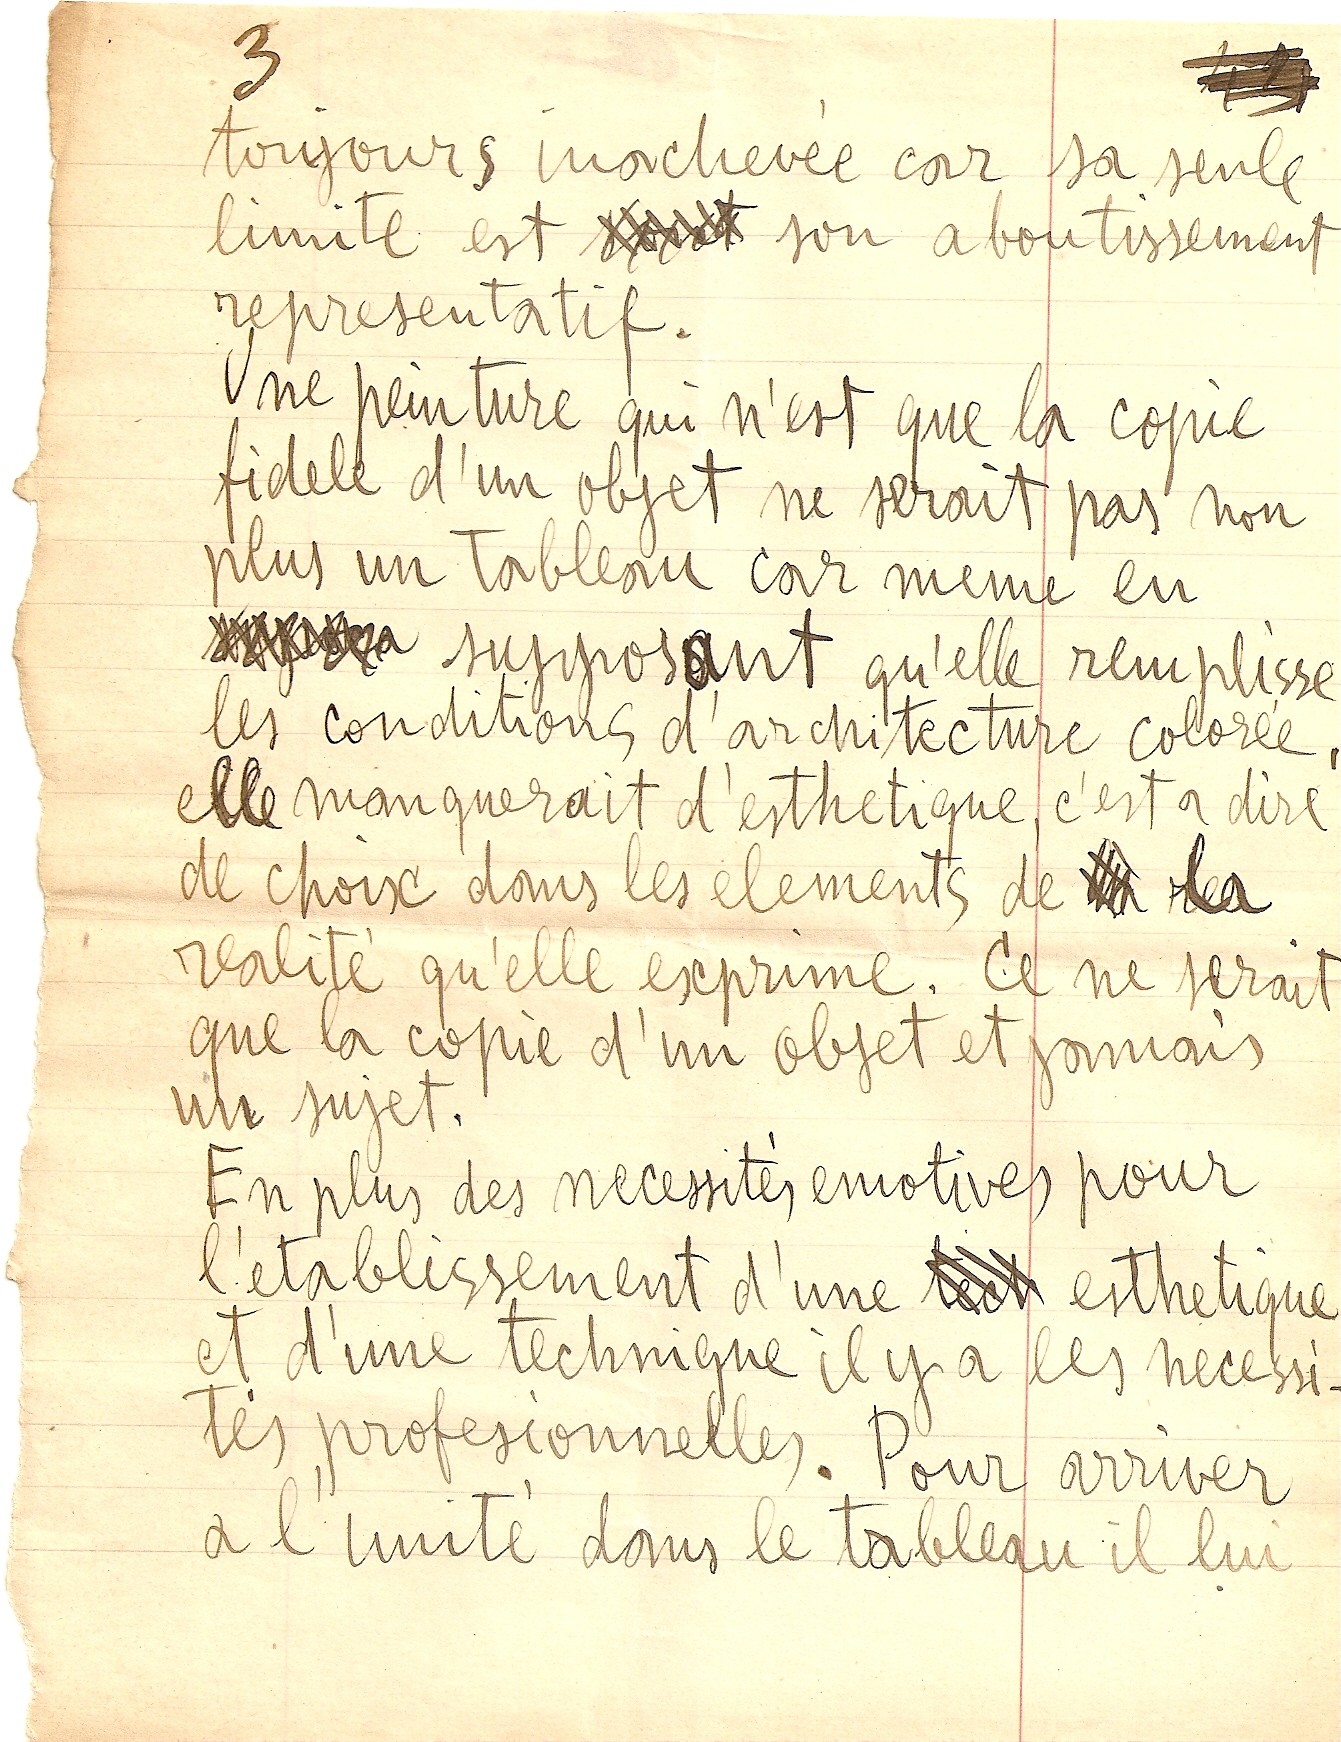 3
toujours inachevée car sa seule
limite est son aboutissement
representatif.
Une peinture qui n'est que la copie
fidele d'un objet ne serait pas non
plus un tableau car meme en
supposant qu'elle remplisse
les conditions d'architecture colorée,
elle manquerait d'esthetique, c'est a dire
de choix dans les elements de la
realité qu'elle exprime. Ce ne serait
que la copie d'un objet et jamais
un sujet.
En plus des necessités emotives pour
l'etablissement d'une esthetique
et d'une technique il y a les necessi-
tés profesionnelles. Pour arriver
a l'unité dans le tableau il lui